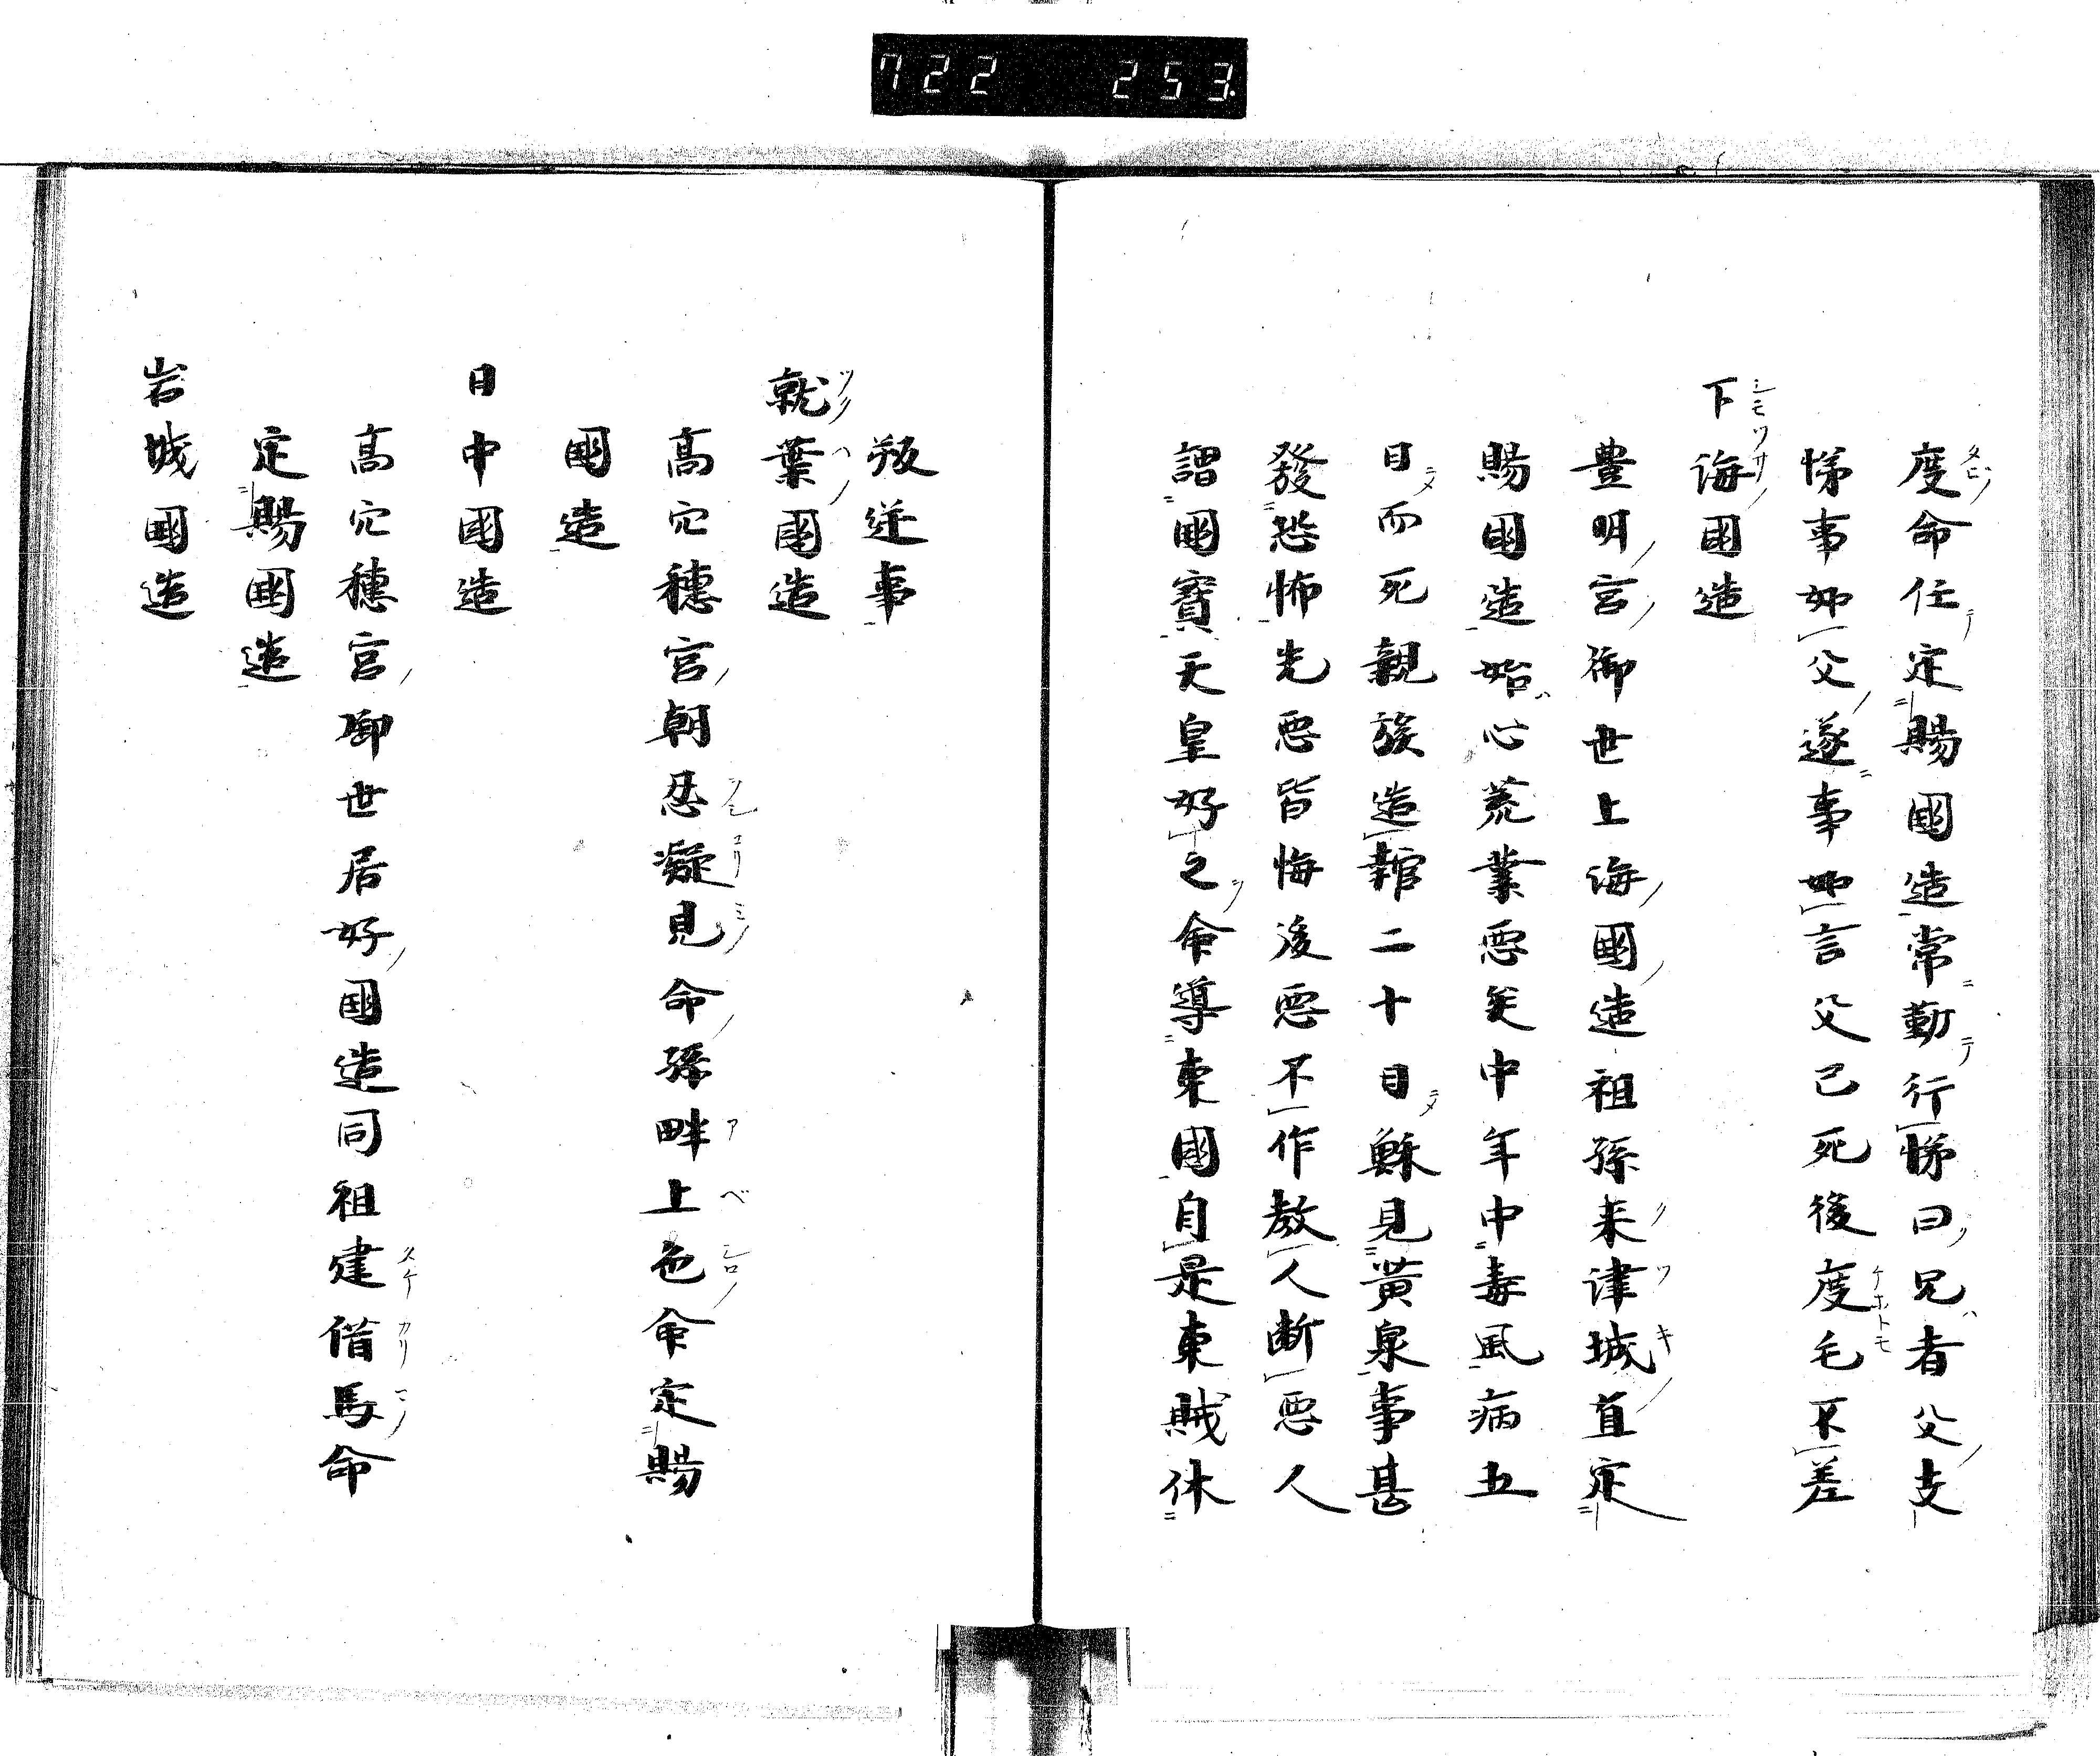 722 253.
度命任定賜國造常勤行悌曰兄者父支
悌事如父遂事如言父已死後度毛不差
下海國造
豊明宮御世上海國造祖孫来津城直定
賜國造始心荒業悪矣中年中毒風病五
日而死親族造棺二十日蘇見黄泉事甚
發恐怖先悪皆悔後悪不作教人断悪人
謂國寳天皇好之命導東國自是東賊休
叛逆事
就葉國造
高穴穗宮朝忍凝見命孫畔上色命定賜
國造
日中國造
高穴穗宮御世居好國造同祖建借馬命
定賜國造
岩城國造